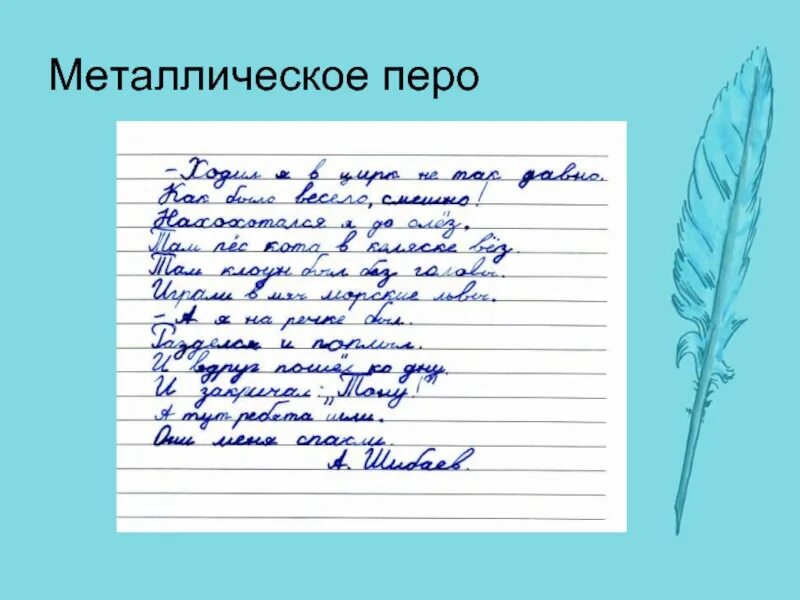 Металлическое перо
- Ходил я в цирк не так давно.
Как было весело, смешно!
Нахохотался я до слёз.
Там пёс кота в коляске вёз.
Там клоун был без головы.
Играли в мяч морские львы.
- А я на речке был.
Разделся и поплыл.
И вдруг пошёл ко дну.
И закричал: „Тону!"
А тут ребята шли.
Они меня спасли.
А. Шибаев.